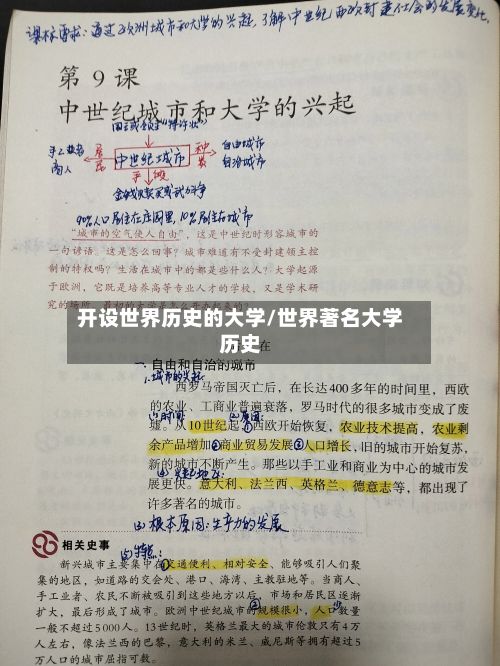 课标要求：通过了解欧洲城市和大学的兴起，了解中世纪西欧封建社会的发展变化。
第9课
中世纪城市和大学的兴起
国王或领主"特许状"
手工业者
商人
居民
中世纪城市
种类
自由城市
自治城市
手段
金钱赎买或武力斗争
90%人口居住在庄园里，10%居住在城市
"城市的空气使人自由"，这是中世纪时形容城市的
一句谚语。这是怎么回事？城市难道有不受封建领主控
制的特权吗？生活在城市中的都是些什么人？大学起源
于欧洲，它既是培养高等专业人才的学校，又是学术研
究的场所。最初的大学是怎么开办起来的？
开设世界历史的大学/世界著名大学
历史
在
一、自由和自治的城市
1.城市的兴起
西罗马帝国灭亡后，在长达400多年的时间里，西欧
的农业、工商业普遍衰落，罗马时代的很多城市变成了废
(1)时间：
(2)原因：
墟。从10世纪起①西欧开始恢复，农业技术提高，农业剩
余产品增加②商业贸易发展③人口增长，旧的城市开始复苏，
新的城市不断产生。那些以手工业和商业为中心的城市发
展更快。意大利、法兰西、英格兰、德意志等，都出现了
许多著名的城市。
根本原因：生产力的发展
相关史事
特点：
新兴城市主要集中在交通便利、相对安全、能够吸引人们聚
集的地区，如道路的交会处、港口、海湾、主教驻地等。当商人、
手工业者、农民不断被吸引到这些地方以后，市场和居民区逐渐
扩大，最后形成了城市。欧洲中世纪城市的规模很小，人口数量
一般不超过5000人。13世纪时，英格兰最大的城市伦敦只有4万
人左右，像法兰西的巴黎，意大利的米兰、威尼斯等拥有超过5
万人口的城市屈指可数。